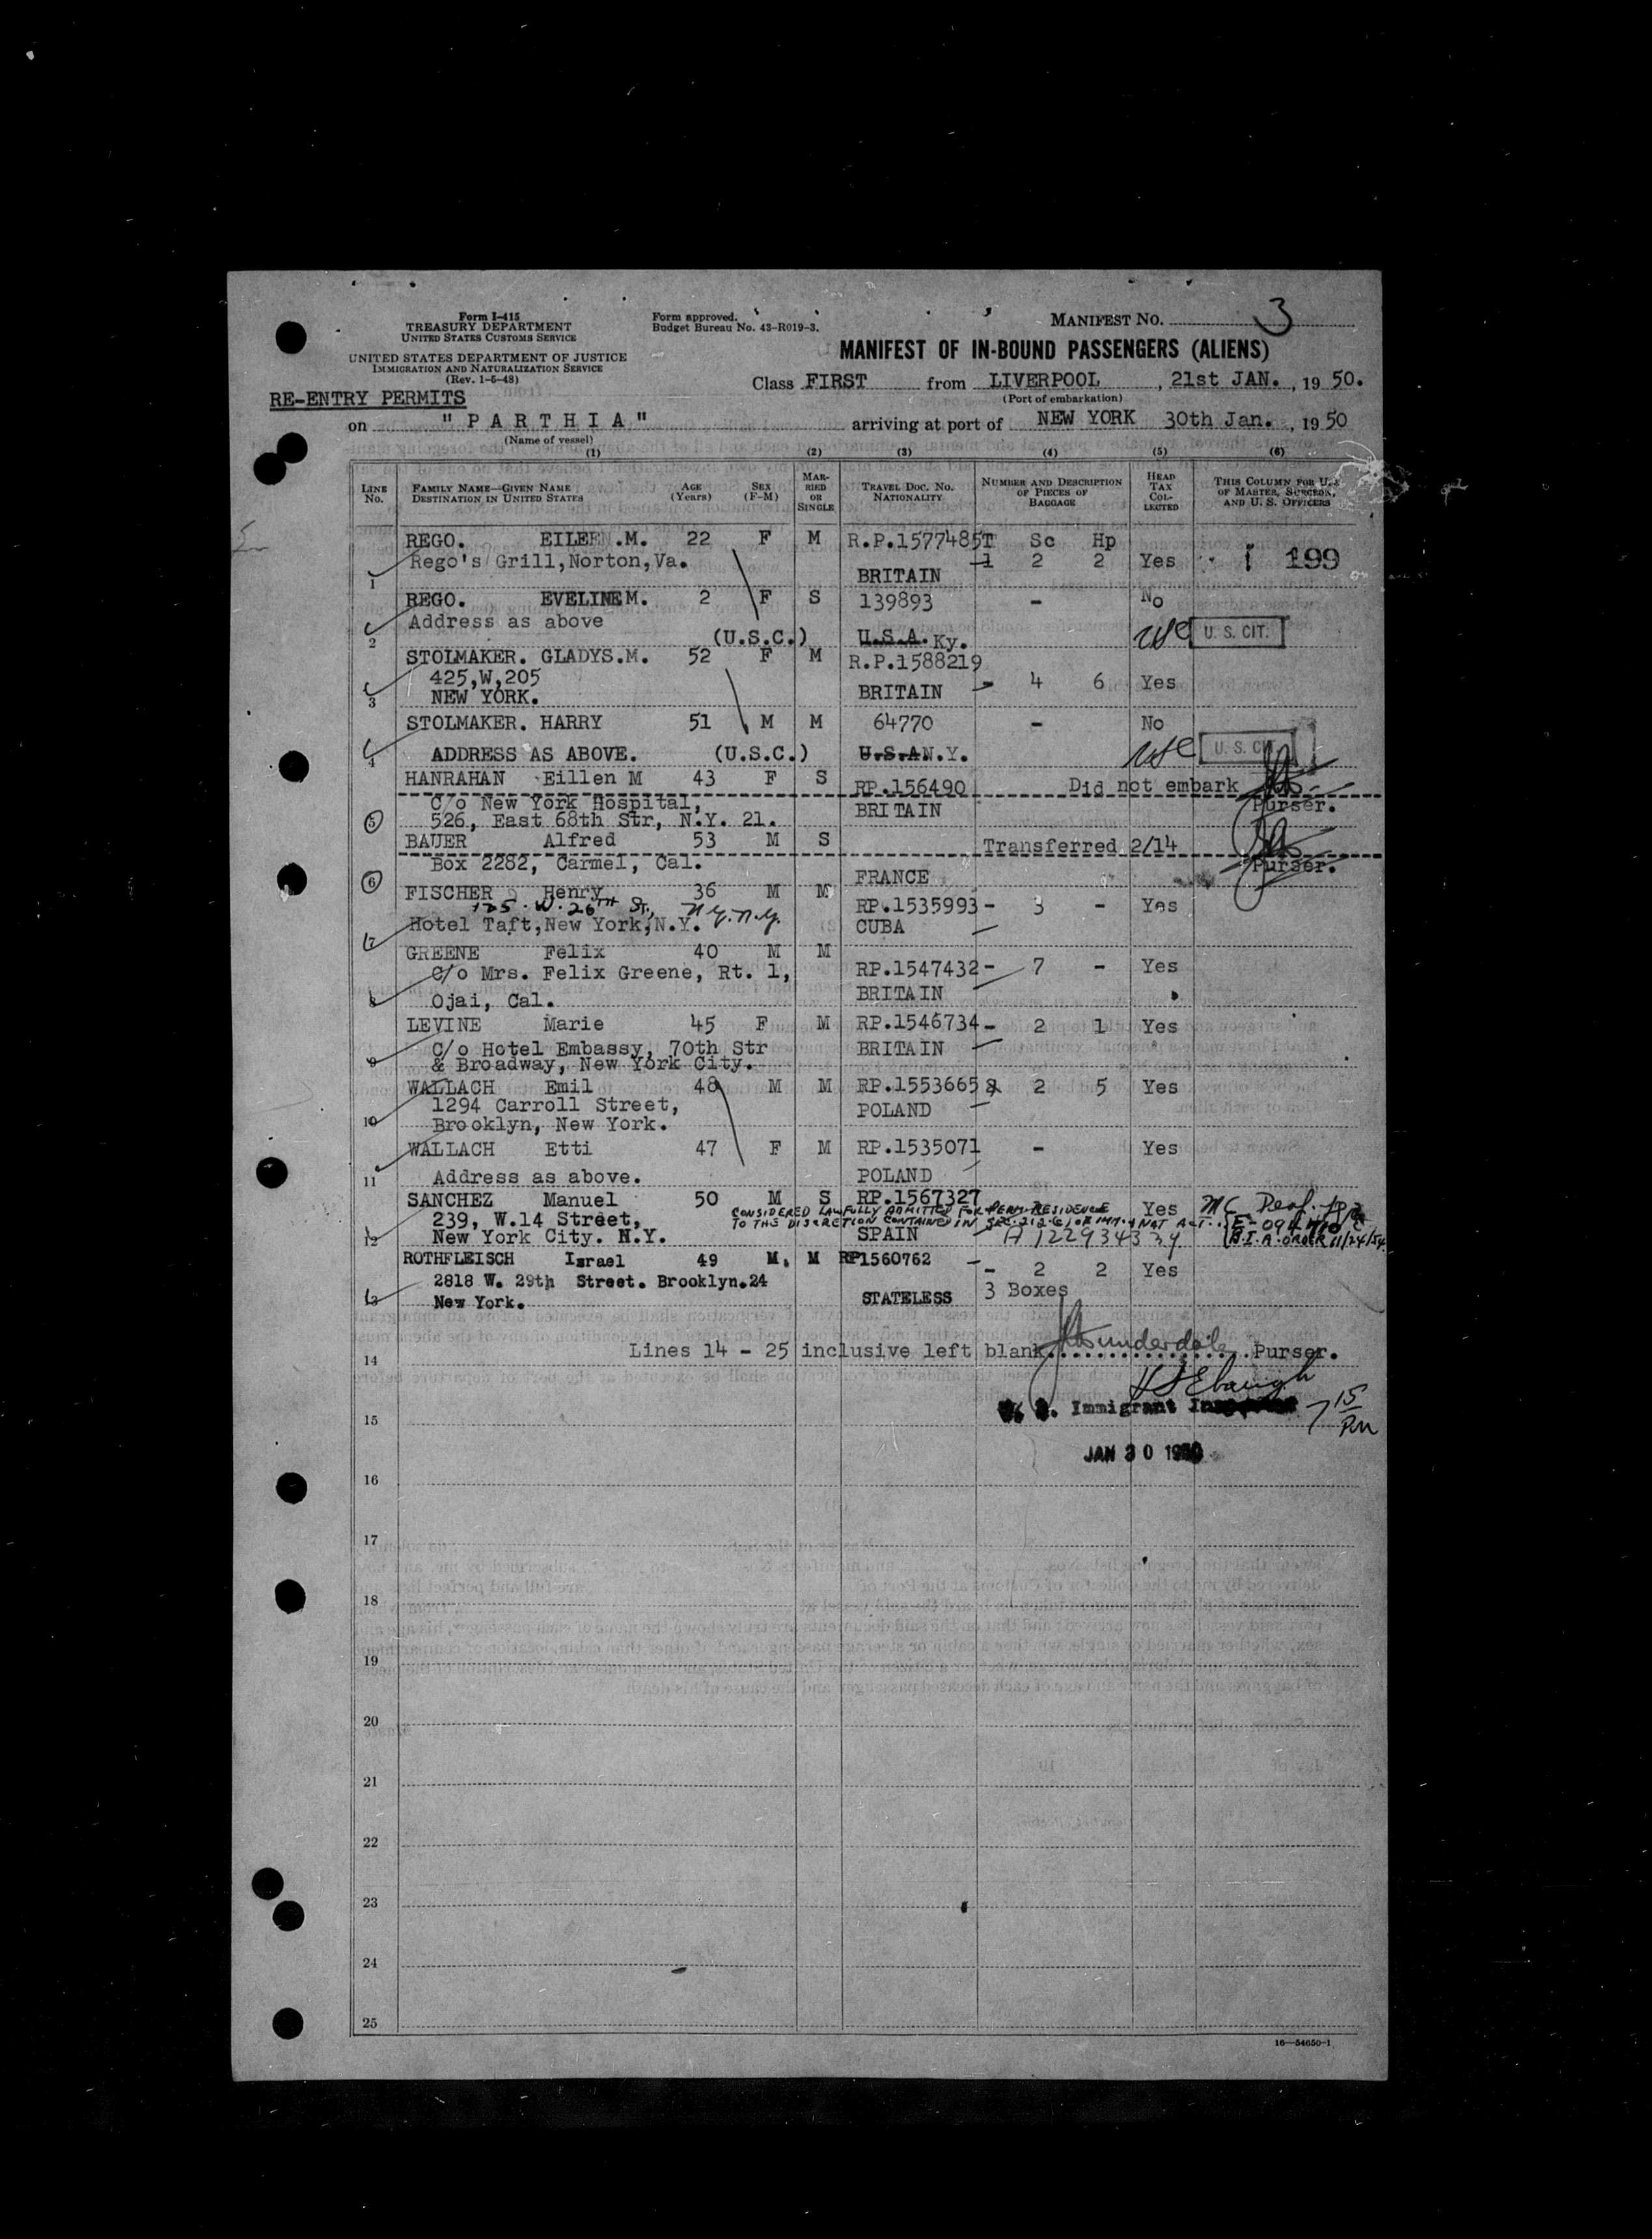 Form I-415
TREASURY DEPARTMENT
UNITED STATES CUSTOMS SERVICE
UNITED STATES DEPARTMENT OF JUSTICE
IMMIGRATION AND NATURALIZATION SERVICE
(Rev. 1-5-48)
Form approved.
Budget Bureau No. 43-R019-3.
MANIFEST NO. 3
MANIFEST OF IN-BOUND PASSENGERS (ALIENS)
Class FIRST from LIVERPOOL, 21st JAN., 1950.
(Port of embarkation)
RE-ENTRY PERMITS
on "PARTHIA" arriving at port of NEW YORK 30th Jan., 1950
(Name of vessel)
(1) (2) (3) (4) (5) (6)
LINE No. FAMILY NAME—GIVEN NAME DESTINATION IN UNITED STATES AGE (Years) SEX (F-M) MARRIED OR SINGLE TRAVEL DOC. NO. NATIONALITY NUMBER AND DESCRIPTION OF PIECES OF BAGGAGE HEAD TAX COLLECTED THIS COLUMN FOR USE OF MASTER, SURGEON, AND U. S. OFFICERS
REGO. EILEEN.M. 22 F M R.P.1577485 T Sc Hp
Rego's Grill,Norton,Va. 1 2 2 Yes 1 199
1 BRITAIN
REGO. EVELINE M. 2 F S 139893 - No
Address as above
2 (U.S.C.) U.S.A. Ky. USC U. S. CIT.
STOLMAKER. GLADYS.M. 52 F M R.P.1588219
425,W,205 - 4 6 Yes
3 NEW YORK. BRITAIN
STOLMAKER. HARRY 51 M M 64770 - No
4 ADDRESS AS ABOVE. (U.S.C.) U.S.A N.Y. USC U. S. CIT.
HANRAHAN Eillen M 43 F S RP.156490 Did not embark
C/o New York Hospital, BRITAIN Purser.
5 526, East 68th Str, N.Y. 21.
BAUER Alfred 53 M S Transferred 2/14
Box 2282, Carmel, Cal. Purser.
6 FRANCE
FISCHER Henry 36 M M RP.1535993 - 3 - Yes
125. W. 26TH St., N.Y.N.Y.
7 Hotel Taft,New York,N.Y. CUBA
GREENE Felix 40 M M
C/o Mrs. Felix Greene, Rt. 1, RP.1547432 - 7 - Yes
8 Ojai, Cal. BRITAIN
LEVINE Marie 45 F M RP.1546734 - 2 1 Yes
C/o Hotel Embassy, 70th Str BRITAIN
9 & Broadway, New York City.
WALLACH Emil 48 M M RP.1553665 2 2 5 Yes
1294 Carroll Street, POLAND
10 Brooklyn, New York.
WALLACH Etti 47 F M RP.1535071 - Yes
11 Address as above. POLAND
SANCHEZ Manuel 50 M S RP.1567327 Yes
CONSIDERED LAWFULLY ADMITTED FOR PERM. RESIDENCE
239, W.14 Street, TO THE DISCRETION CONTAINED IN SEC. 212(c) OF IMM. & NAT ACT.
12 New York City. N.Y. SPAIN B.I.A. ORDER 11/24/54
ROTHFLEISCH Israel 49 M. M RP1560762
2818 W. 29th Street. Brooklyn.24 - 2 2 Yes
13 New York. STATELESS 3 Boxes
14 Lines 14 - 25 inclusive left blank. Purser.
U. S. Immigrant Inspector 7 15 PM
15
JAN 30 1950
16
17
18
19
20
21
22
23
24
25
16—54650-1